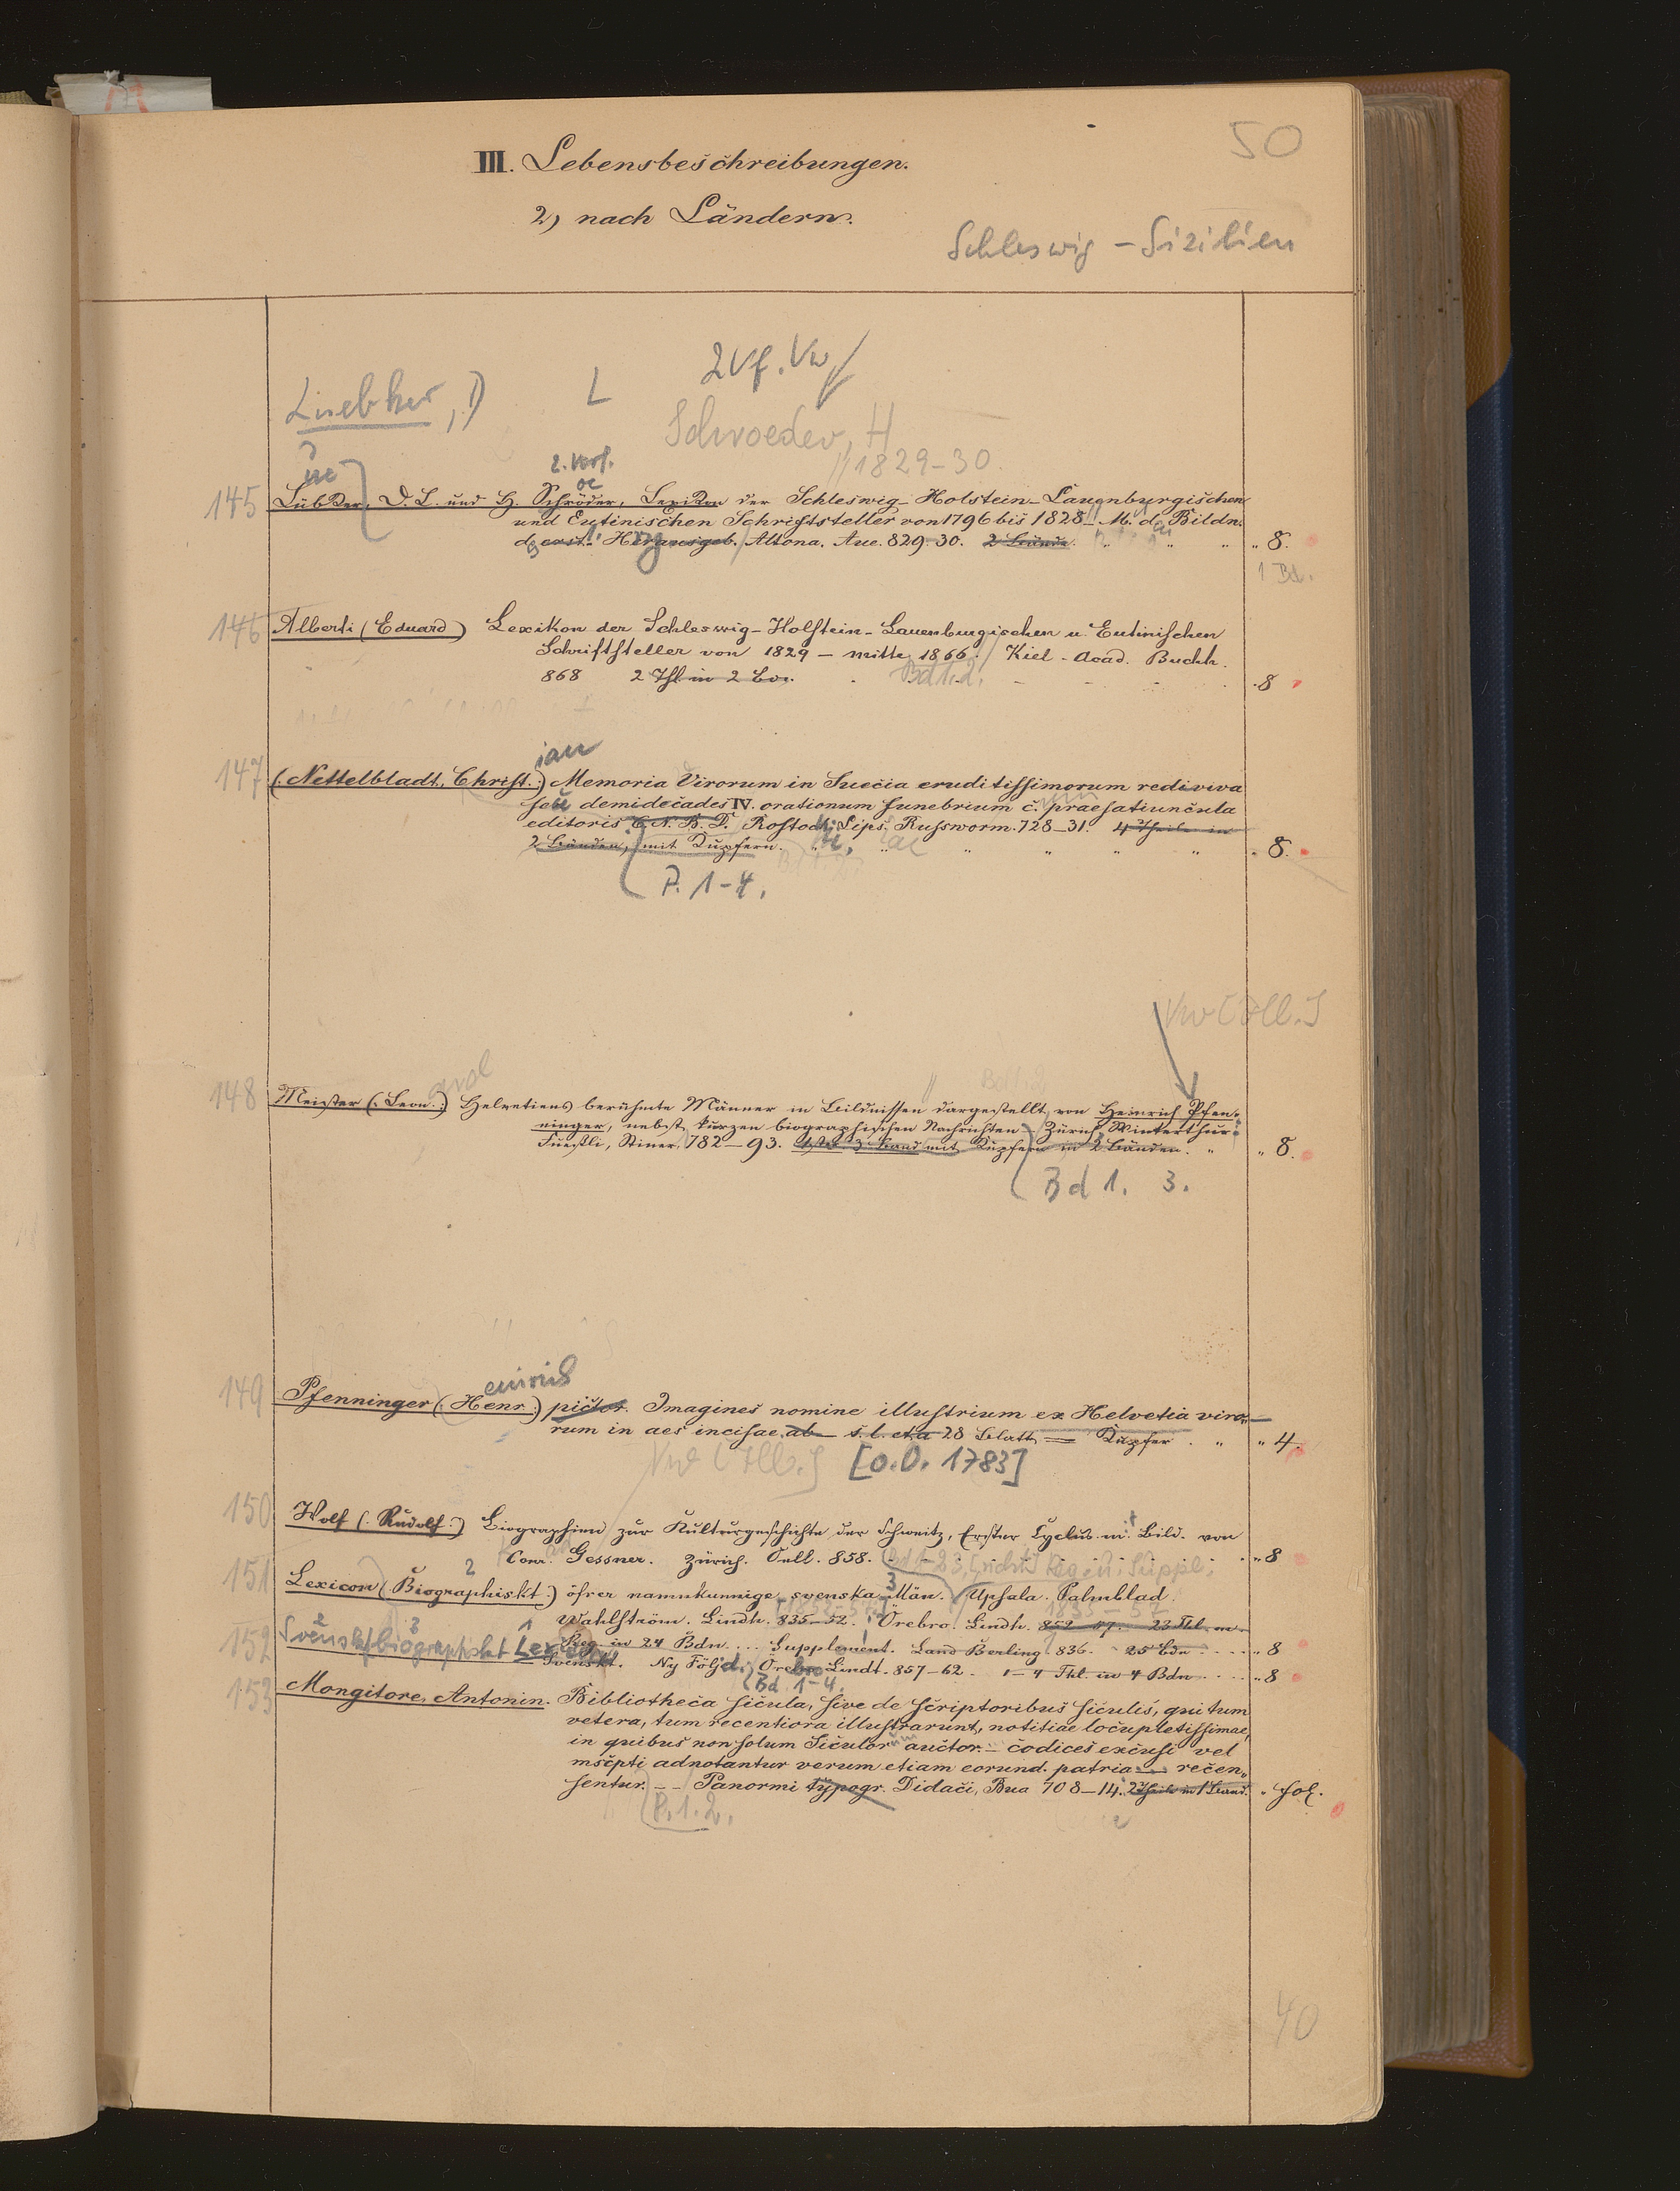 50
III. Lebensbeschreibungen.
2) nach Ländern.
Schleswig - Sizilien
2 Vf. Vw
Luebker, D L
Schroeder, H
1829-30.
ue 2. Verf. oe
145 Lübker, D. L. und H. Schröder, Lexikon der Schleswig-Holstein-Lauenburgischen
und Eutinischen Schriftsteller von 1796 bis 1828 M. d. Bildn.
d. erst. Herausgeb. Altona. Aue. 829. 30. 2 Bände. " " " 8.
1 Bd.
146 Alberti (Eduard) Lexikon der Schleswig-Holstein-Lauenburgischen u. Eutinischen
Schriftsteller von 1829 - Mitte 1866. Kiel - Acad. Buchh.
868 2 Thl in 2 Bdn. Bd 1.2. 8
ian
147 (: Nettelbladt, Christ. :) Memoria Virorum in Suecia eruditissimorum rediviva
seu demidecades IV. orationum funebrium c. praefatiuncula
editoris C. N. B. D. Rostoch. Lips. Russworm. 728-31. 4 Theile in
2 Bänden, mit Kupfern. " " " " 8.
P. 1-4.
Vw [Ill.]
148 Meister (: Leon. :) Helvetiens berühmte Männer in Bildnissen dargestellt von Heinrich Pfen-
ninger, nebst kurzen biographischen Nachrichten - Zürich Winterthur:
Fuessli, Steiner, 782-93. Band mit Kupfern in 2 Bänden. " " 8.
Bd 1. 3.
149 Pfenninger (: Henr. :) pictor. Imagines nomine illustrium ex Helvetia viro-
rum in aes incisae ab s. l. et a 28 Blatt = Kupfer. " " 4.
Vw [Ill.] [o. O. 1783]
150 Wolf (: Rudolf :) Biographien zur Kulturgeschichte der Schweitz, Erster Cyclus mit Bild. von
Conr. Gessner. Zürich. Orell. 858. " 8
151 Lexicon (: Biographiskt :) öfver namnkunnige svenska Män. Upsala. Palmblad.
Wahlström. Lindh. 835-52. Örebro. Lindh. 852-57. 23 Thl. m.
Reg. in 24 Bdn .... Supplement. Lund Berling. 836. 25 Bdn .... " 8
152 Svenskt biographiskt Lexicon
Svenskt. Ny Följd. Örebro Lindh. 857-62. 1-4 Thl. in 4 Bdn .... " 8
Bd. 1-4.
153 Mongitore, Antonin. Bibliotheca sicula, sive de scriptoribus siculis, qui tum
vetera, tum recentiora illustrarunt, notitiae locupletissimae,
in quibus non solum Siculor auctor. - codices excusi vel
mscpti adnotantur verum etiam eorund. patria — recen-
sentur. — Panormi typogr. Didaci, Bua 708-14. 2 Theile in 1 Band. " fol.
P. 1. 2.
40